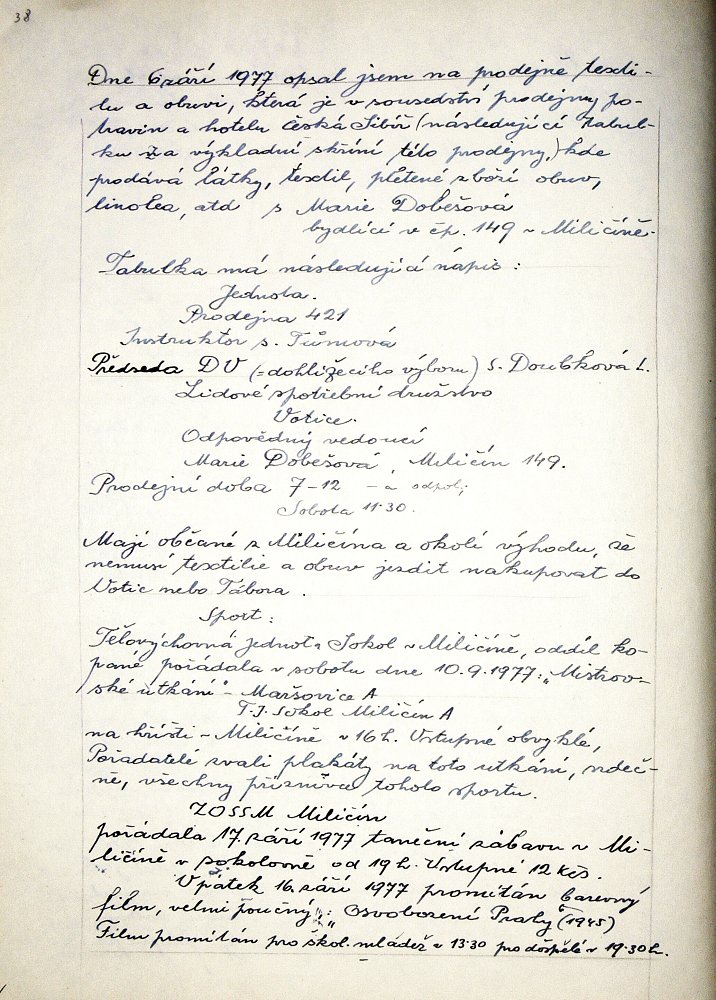 38
Dne 6 září 1977 opsal jsem na prodejně texti-
lu a obuvi, která je v sousedství prodejny po-
travin a hotelu Česká Sibiř (následující tabul-
ku za výkladní skříní této prodejny,) kde
prodává látky, textil, pletené zboží obuv,
linolea, atd s Marie Dobešová
bydlící v čp. 149 v Miličíně.
Tabulka má následující nápis:
Jednota.
Prodejna 421
Instruktor s. Tůmová
Předseda DV (=dohlížecího výboru) s. Doubková L.
Lidové spotřební družstvo
Votice.
Odpovědný vedoucí
Marie Dobešová, Miličín 149.
Prodejní doba 7-12 - a odpol;
Sobota 11.30.
Mají občané z Miličína a okolí výhodu, že
nemusí textilie a obuv jezdit nakupovat do
Votic nebo Tábora.
Sport:
Tělovýchovná jednota Sokol v Miličíně, oddíl ko-
pané pořádala v sobotu dne 10.9.1977: „Mistrov-
ské utkání" - Maršovice A
T.J. Sokol Miličín A
na hřišti - Miličíně v 16 h. Vstupné obvyklé,
Pořadatelé zvali plakáty na toto utkání, srdeč-
ně, všechny příznivce tohoto sportu.
ZOSSM Miličín
pořádala 17. září 1977 taneční zábavu v Mi-
ličíně v sokolovně od 19 h. Vstupné 12 Kčs.
V pátek 16. září 1977 promítán barevný
film, velmi poučný: „Osvobození Prahy" (1945)
Film promítán pro škol. mládež v 13.30 pro dospělé v 19.30 h.